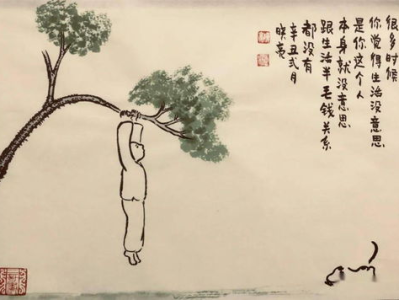 很多时候
你觉得生活没意思
是你这个人
本身就没意思
跟生活半毛钱关系
都没有
辛丑弍月